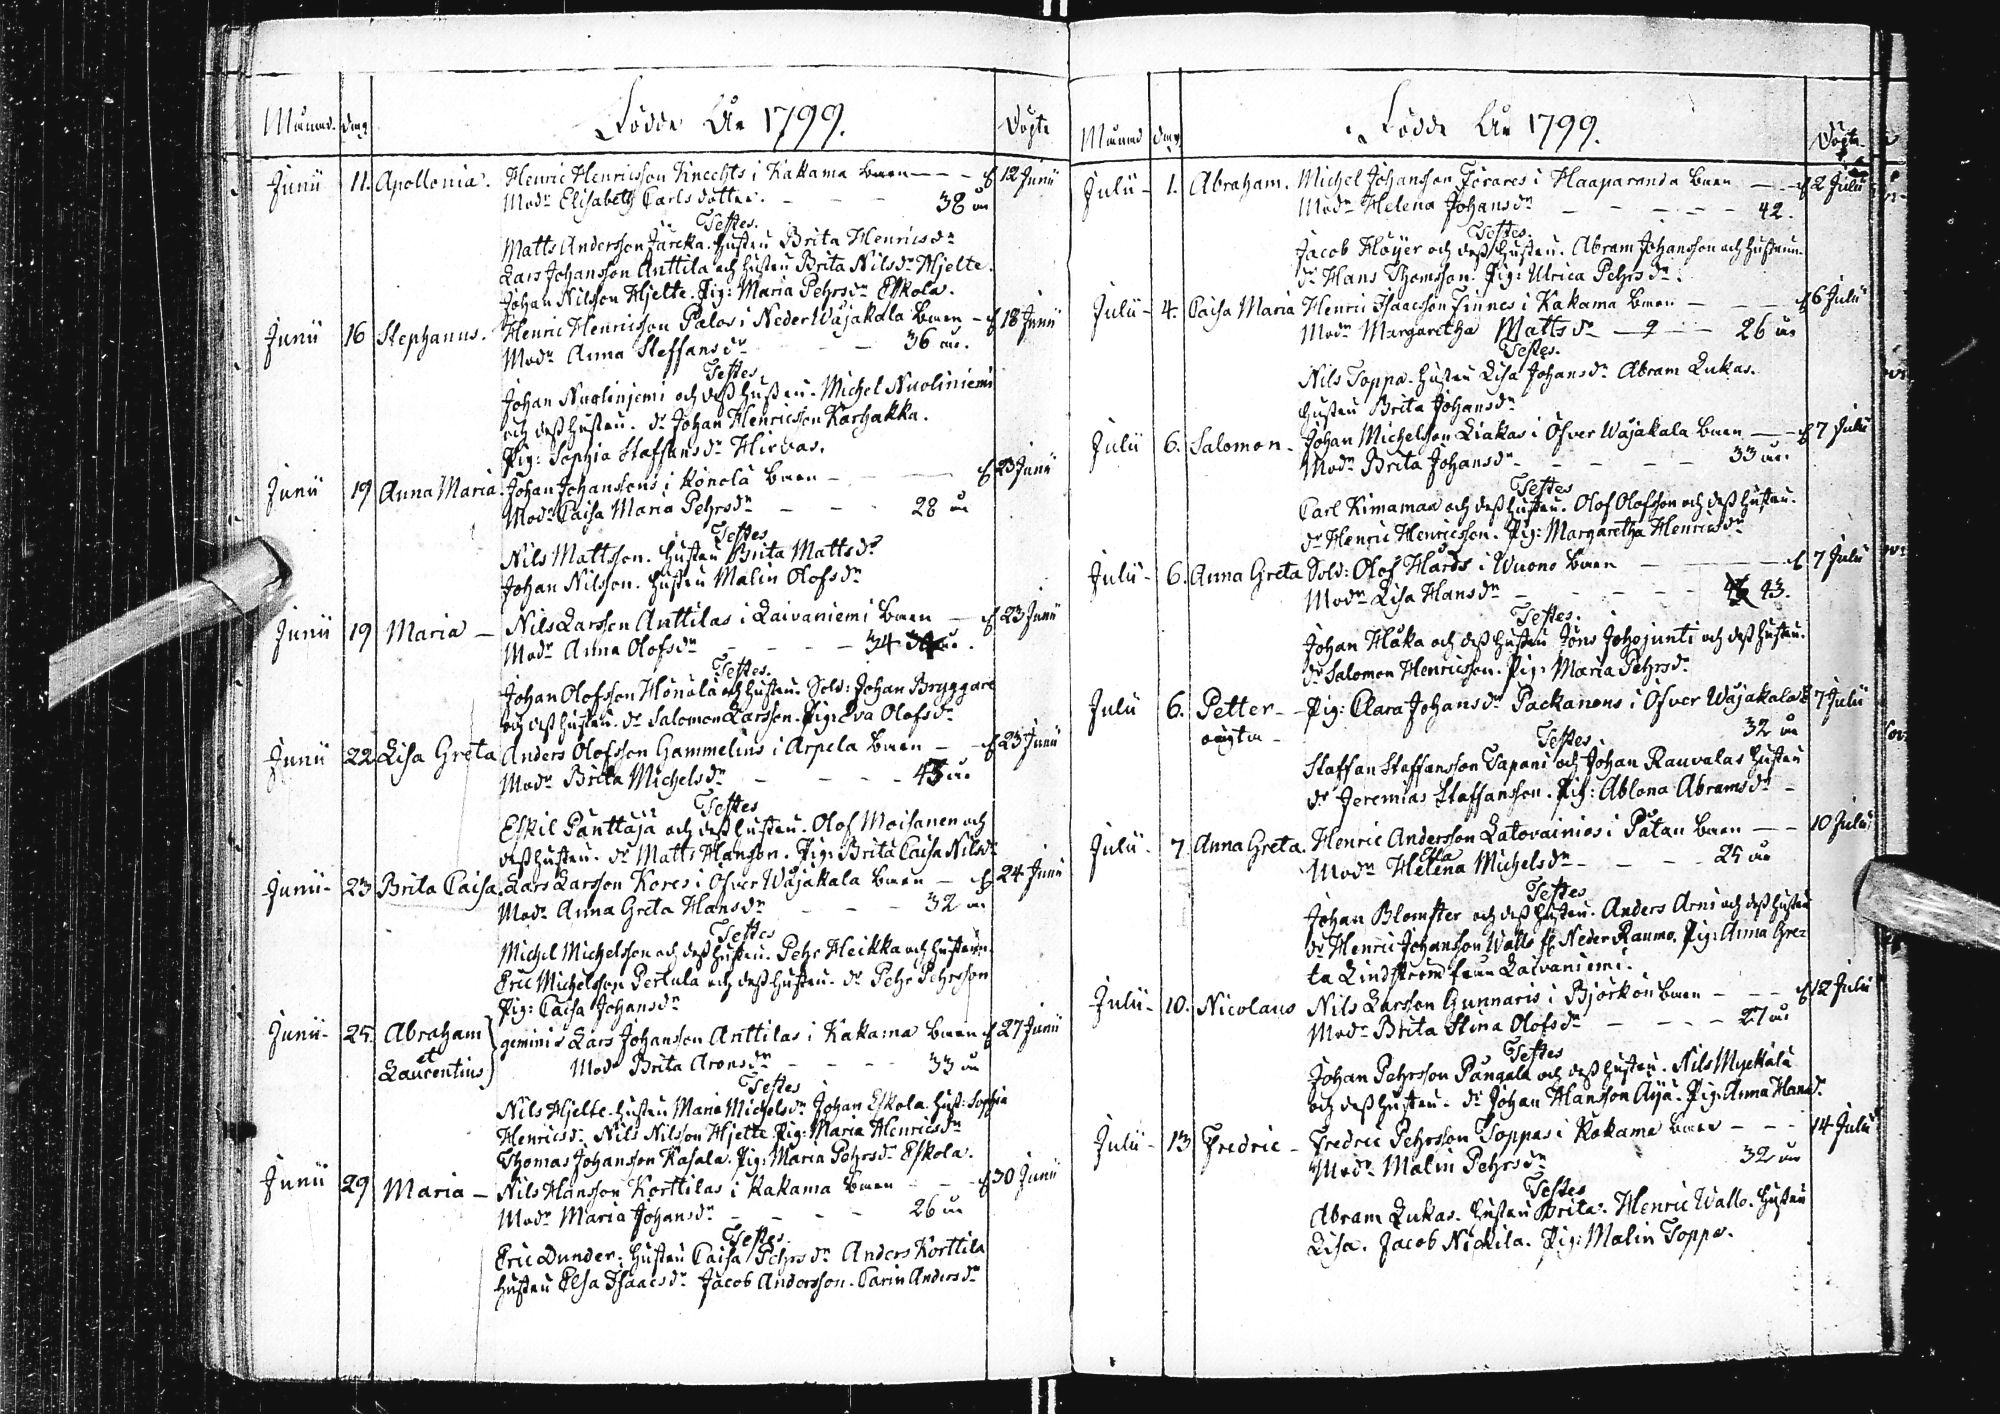 Månad. dag. Födde År 1799. Döpte
Junii 11. Apollonia. Henric Henricsson Knechts i Kakama barn 12 Junii
Modr Elisabeth Carlsdotter. 38 år
Testes.
Matts Andersson Järcka. Hustru Brita Henricsdr
Lars Johansson Anttila och hustru Brita Nilsdr Hjelte.
Johan Nilsson Hjelte. Pig: Maria Pehrsdr Eskola.
Junii 16 Stephanus. Henric Henricsson Palos i Neder Wåjakala barn 18 Junii
Modr Anna Steffansdr 36 år.
Testes
Johan Nuoliniemi och dess hustru. Michel Nuoliniemi
och dess hustru. dr Johan Henricsson Karhakka.
Pig: Sophia Staffansdr Hirvas.
Junii 19 Anna Maria. Johan Johanssons i Könölä barn 23 Junii
Modr Caisa Maria Pehrsdr 28 år
Testes
Nils Mattsson. hustru Brita Mattsdr
Johan Nilsson. hustru Malin Olofsdr
Junii 19 Maria Nils Larsson Anttilas i Laivaniemi barn 23 Junii
Modr Anna Olofsdr 34
Testes.
Johan Olofsson Hönälä och hustru. Sold: Johan Bryggare
och dess hustru. dr Salomon Larsson. Pig: Eva Olofsdr
Junii 22 Lisa Greta Anders Olofsson Gammelins i Arpela barn 23 Junii
Modr Brita Michelsdr 43 år
Testes
Eskil Panttaja och dess hustru. Olof Moisanen och
dess hustru. dr Matts Hansson. Pig: Brita Caisa Nilsdr
Junii 23 Brita Caisa. Lars Larsson Kores i Ofver Wåjakala barn 24 Junii
Modr Anna Greta Hansdr 32 år
Testes
Michel Michelsson och dess hustru. Pehr Heikka och hustrun.
Eric Michelsson Pertula och dess hustru. dr Pehr Pehrsson
Pig: Caisa Johansdr
Junii 25. Abraham geminis Lars Johansson Anttilas i Kakama barn 27 Junii
et
Laurentius Modr Brita Aronsdr 33 år
Testes
Nils Hjelte. hustru Maria Michelsdr Johan Eskola. hust: Sophia
Henricsdr. Nils Nilsson Hjelte. Pig: Maria Henricsdr
Thomas Johansson Kasala. Pig: Maria Pehrsdr Eskola.
Junii 29 Maria Nils Hansson Korttilas i Kakama barn 30 Junii
Modr Maria Johansdr 26 år
Testes.
Eric Dunder. hustru Caisa Pehrsdr Anders Korttila
hustru Elsa Isaacsdr Jacob Andersson. Carin Andersdr
Månad dag. Födde År 1799. Döpte
Julii 1. Abraham. Michel Johansson Törares i Haaparanda barn 2 Julii
Modr Helena Johansdr 42.
Testes.
Jacob Höyer och dess hustru. Abram Johansson och hustrun.
dr Hans Thomsson. Pig: Ulrica Pehrsdr.
Julii 4. Caisa Maria Henric Isaacsson Finnes i Kakama barn 6 Julii
Modr Margaretha Mattsdr 26 år
Testes.
Nils Toppo. hustru Lisa Johansdr Abram Lukas.
hustru Brita Johansdr
Julii 6. Salomon Johan Michelsson Liakas i Ofver Wåjakala barn 7 Julii
Modr Brita Johansdr 33 år.
Testes
Carl Kimamaa och dess hustru. Olof Olofsson och dess hustru.
dr Henric Henricsson. Pig: Margaretha Henricsdr
Julii 6. Anna Greta Sold: Olof Hårds i Wuono barn 7 Julii
Modr Lisa Hansdr 43.
Testes.
Johan Håka och dess hustru Jöns Johojunti och dess hustru.
dr Salomon Henricsson. Pig: Maria Pehrsdr
Julii 6. Petter Pig: Clara Johansdr Packanens i Ofver Wåjakala 7 Julii
oägta 32 år
Testes.
Staffan Staffansson Tapani och Johan Rauvalas hustru
dr Jeremias Staffansson. Pig: Ablona Abramsdr
Julii 7. Anna Greta. Henric Andersson Latovainios i Pätan barn 10 Julii
Elsa
Modr Helena Michelsdr 25 år
Testes
Johan Blomster och dess hustru. Anders Arni och dess hustru
dr Henric Johansson Walls fr Neder Raumo. Pig: Anna Gre-
ta Lindström från Laivaniemi.
Julii 10. Nicolaus Nils Larsson Gunnaris i Björkön barn 12 Julii
Modr Brita Stina Olofsdr 27 år
Testes
Johan Pehrsson Pangala och dess hustru. Nils Myckälä
och dess hustru. dr Johan Hansson Äyä. Pig: Anna Hansdr.
Julii 13 Fredric Fredric Pehrsson Toppas i Kakama barn 14 Julii
Modr Malin Pehrsdr 32 år
Testes
Abram Lukas. hustru Brita. Henric Wallo. hustru
Lisa. Jacob Nickila. Pig: Malin Toppo.